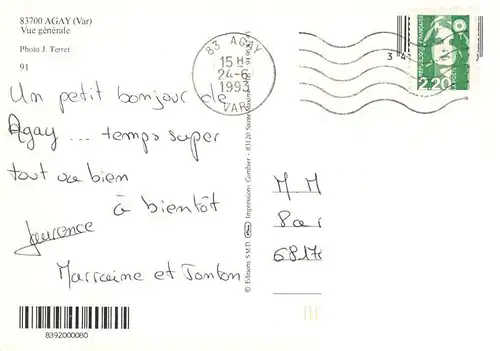 83700 AGAY (Var)
Vue générale
Photo J. Terret
91
83 AGAY
15 H
24-6
1993
VAR
2,20
Un petit bonjour de
Agay ... temps super
tout va bien
à bientôt
Laurence
Marraine et Tonton
© Editions S.M.D. Impressions Gambier - 83120 Sainte
M M
8392000080